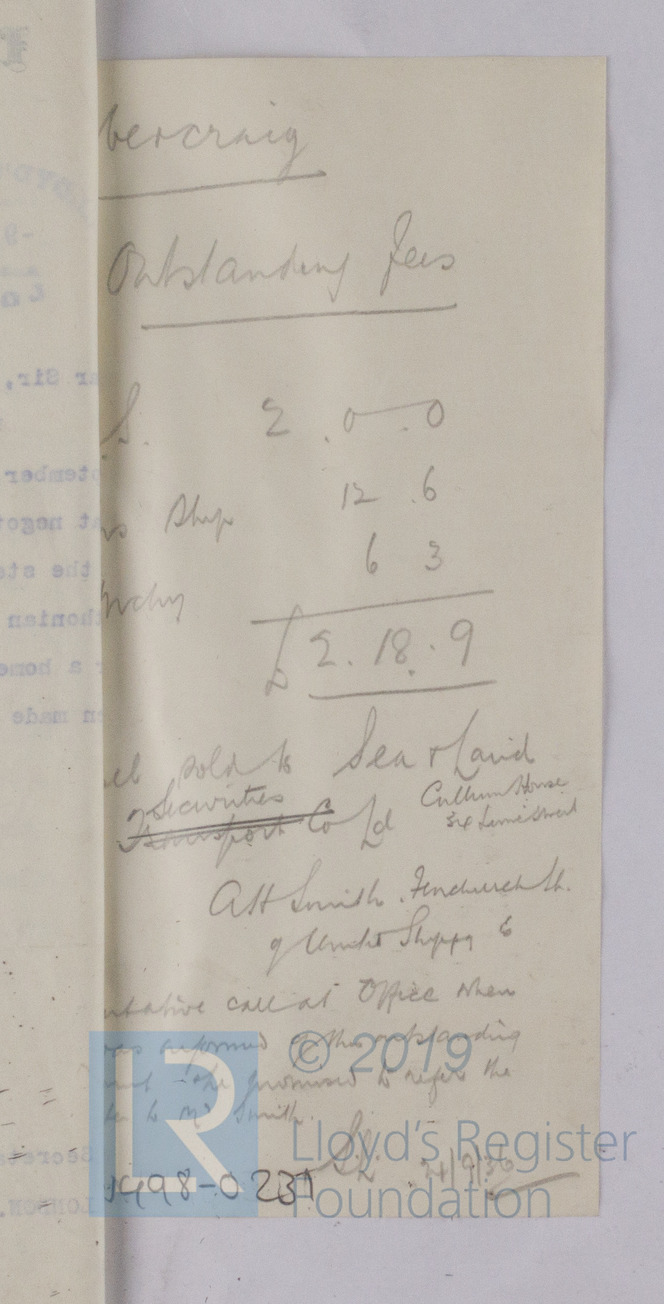 bercraig
Outstanding Fees
S. 2 . 0 . 0
Ship 12 . 6
6 3
£ 2 . 18 . 9
sold to Sea & Land
Securities
Transport Co Ld
Cullum House
34 Lime Street
A H Smith . Fenchurch St.
of United Shipping Co
ntative call at Office when
was informed of the outstanding
he promised to refer the
to Mr Smith.
24/9/36
1498-0231
© 2019
LR
Lloyd's Register
Foundation
ar Sir,
ptember
at negot
the ste
thonian
a home
en made
Secreta
LONDON.